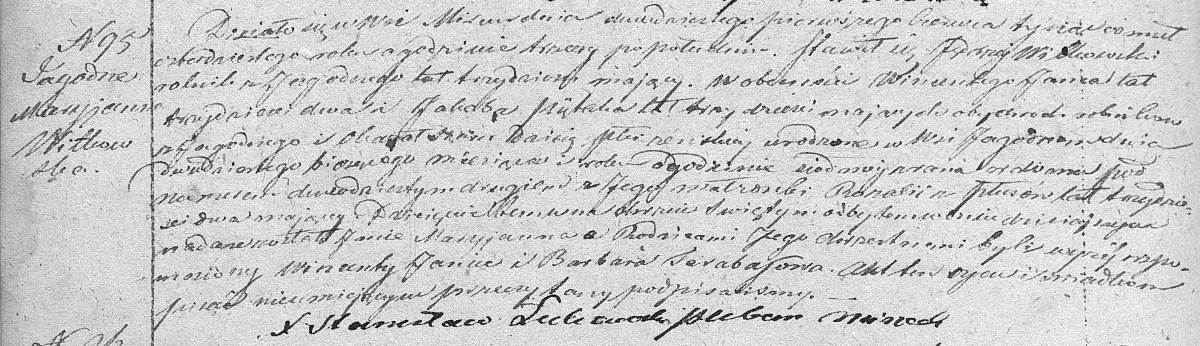 N 95
Jagodne
Maryjanna
Witkow
ska.
Działo się w Wsi dnia dwudziestego pierwszego Czerwca tysiąc osmset
czterdziestego roku o godzinie trzeciej po południu. Stawił się Jędrzej Witkowski
rolnik z Jagodnego lat trzydzieści mający. W obecności Wincentego Janca lat
trzydzieści dwa i Jakóba lat trzydzieści mających obydwoch rolników
z Jagodnego i okazał Nam Dziecię płci żeńskiej urodzone w Wsi Jagodnem dnia
dwudziestego bieżącego miesiąca i roku o godzinie siódmej zrana w domu pod
numerem dwudziestym drugiem z Jego małżonki Rozalii z lat trzydzie-
ści dwa mającej. Dziecięciu temu na chrzcie Świętym odbytem w dniu dzisiejszym
nadane zostało Imie Maryjanna a Rodzicami Jego chrzestnemi byli wyżej wspo-
mniony Wincenty Janiec i Barbara. Akt ten ojcu i świadkom
pisać nieumiejącym przeczytany podpisaliśmy.
X Stanisław pleban